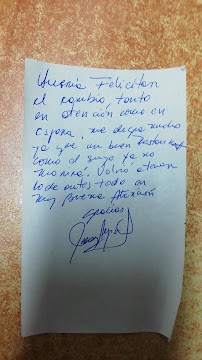 Querría Felicitar
el cambio, tanto
en atención como en
espera, me alegra mucho
ya que un buen restaurant
como el suyo ya no
Volvió a
todo en
muy buena Atención
Gracias